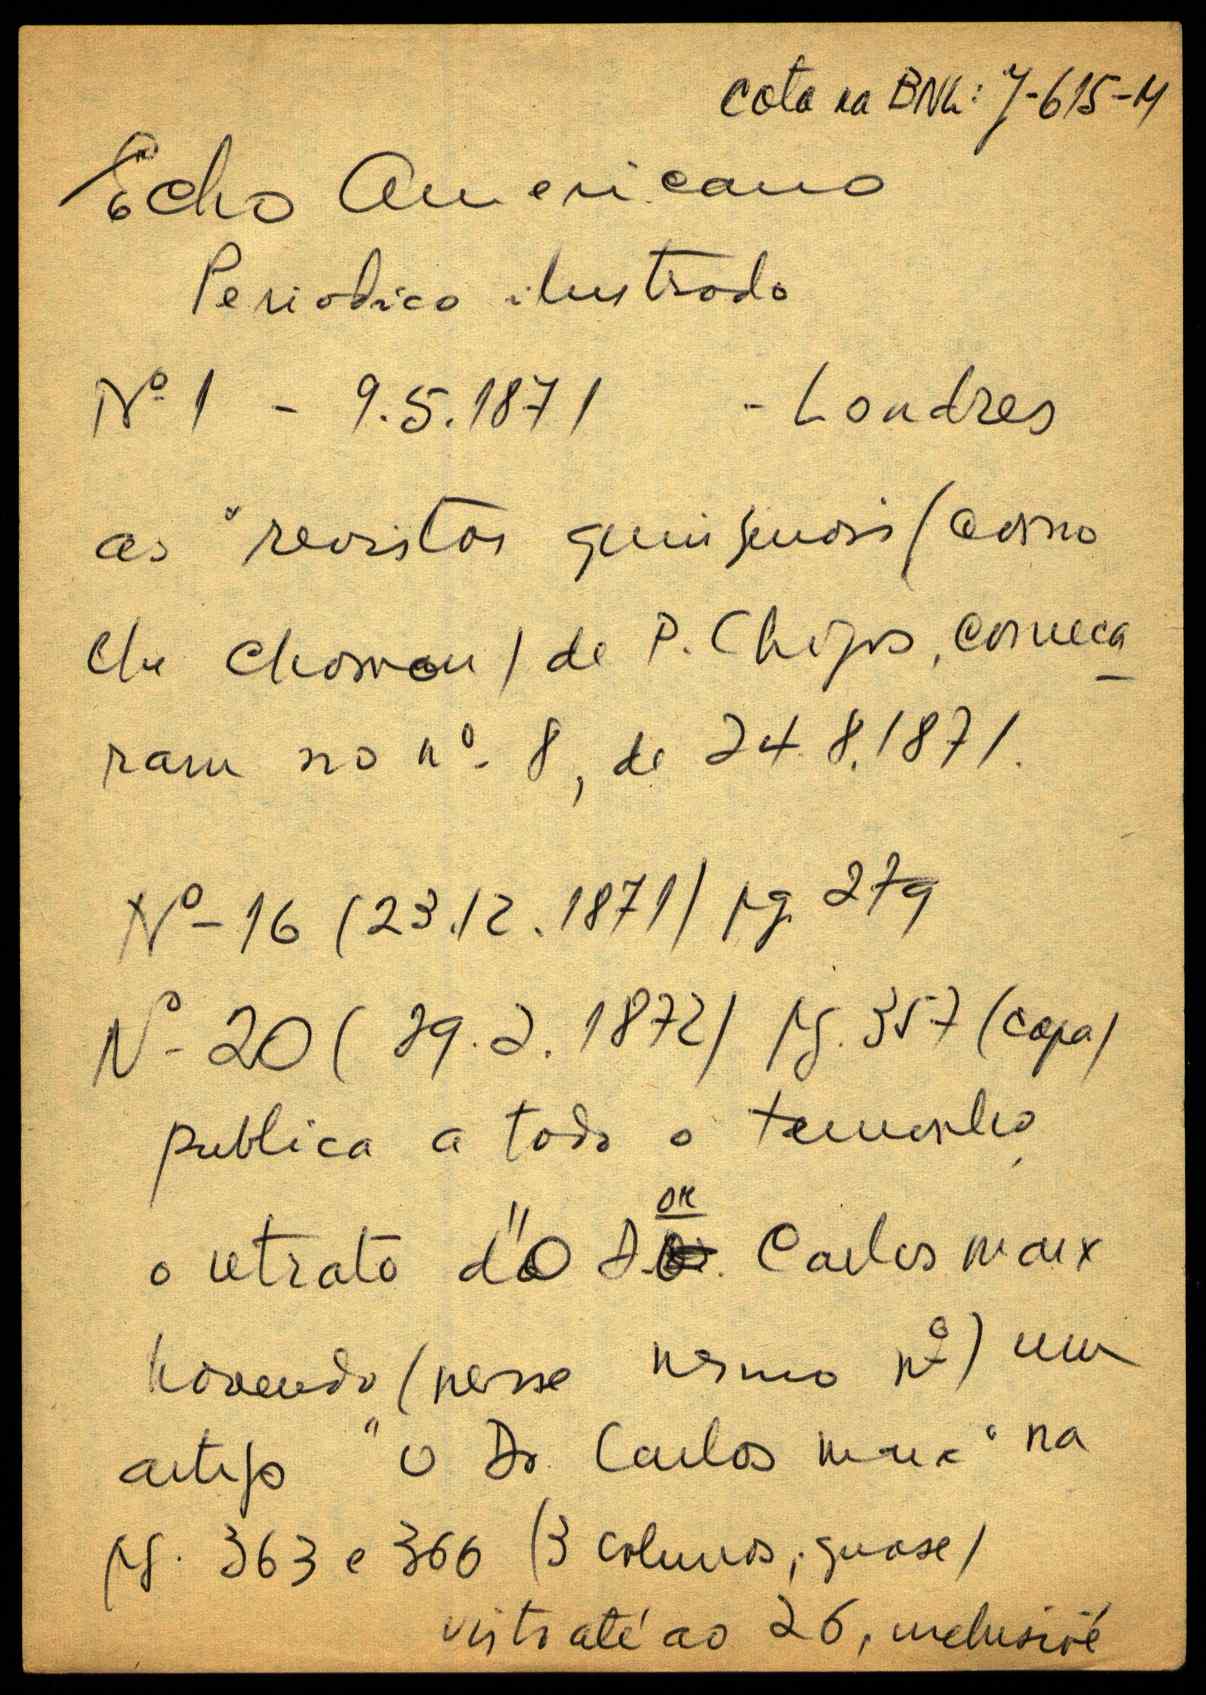 cota na BNL: J-615-M
Echo Americano
Periodico ilustrado
Nº 1 - 9.5.1871 - Londres
as "revistas quinzenais (como
ele chamou) de P. Chagas, começa
ram no nº 8, de 24.8.1871.
Nº 16 (23.12.1871) pg. 279
Nº 20 (29.2.1872) pg. 357 (capa)
publica a todo o tamanho
o retrato d"O DR. Carlos Marx
havendo (nesse mesmo nº) um
artigo "O Dr. Carlos Marx" na
pg. 363 e 366 (3 colunas, quase)
visto até ao 26, inclusivé